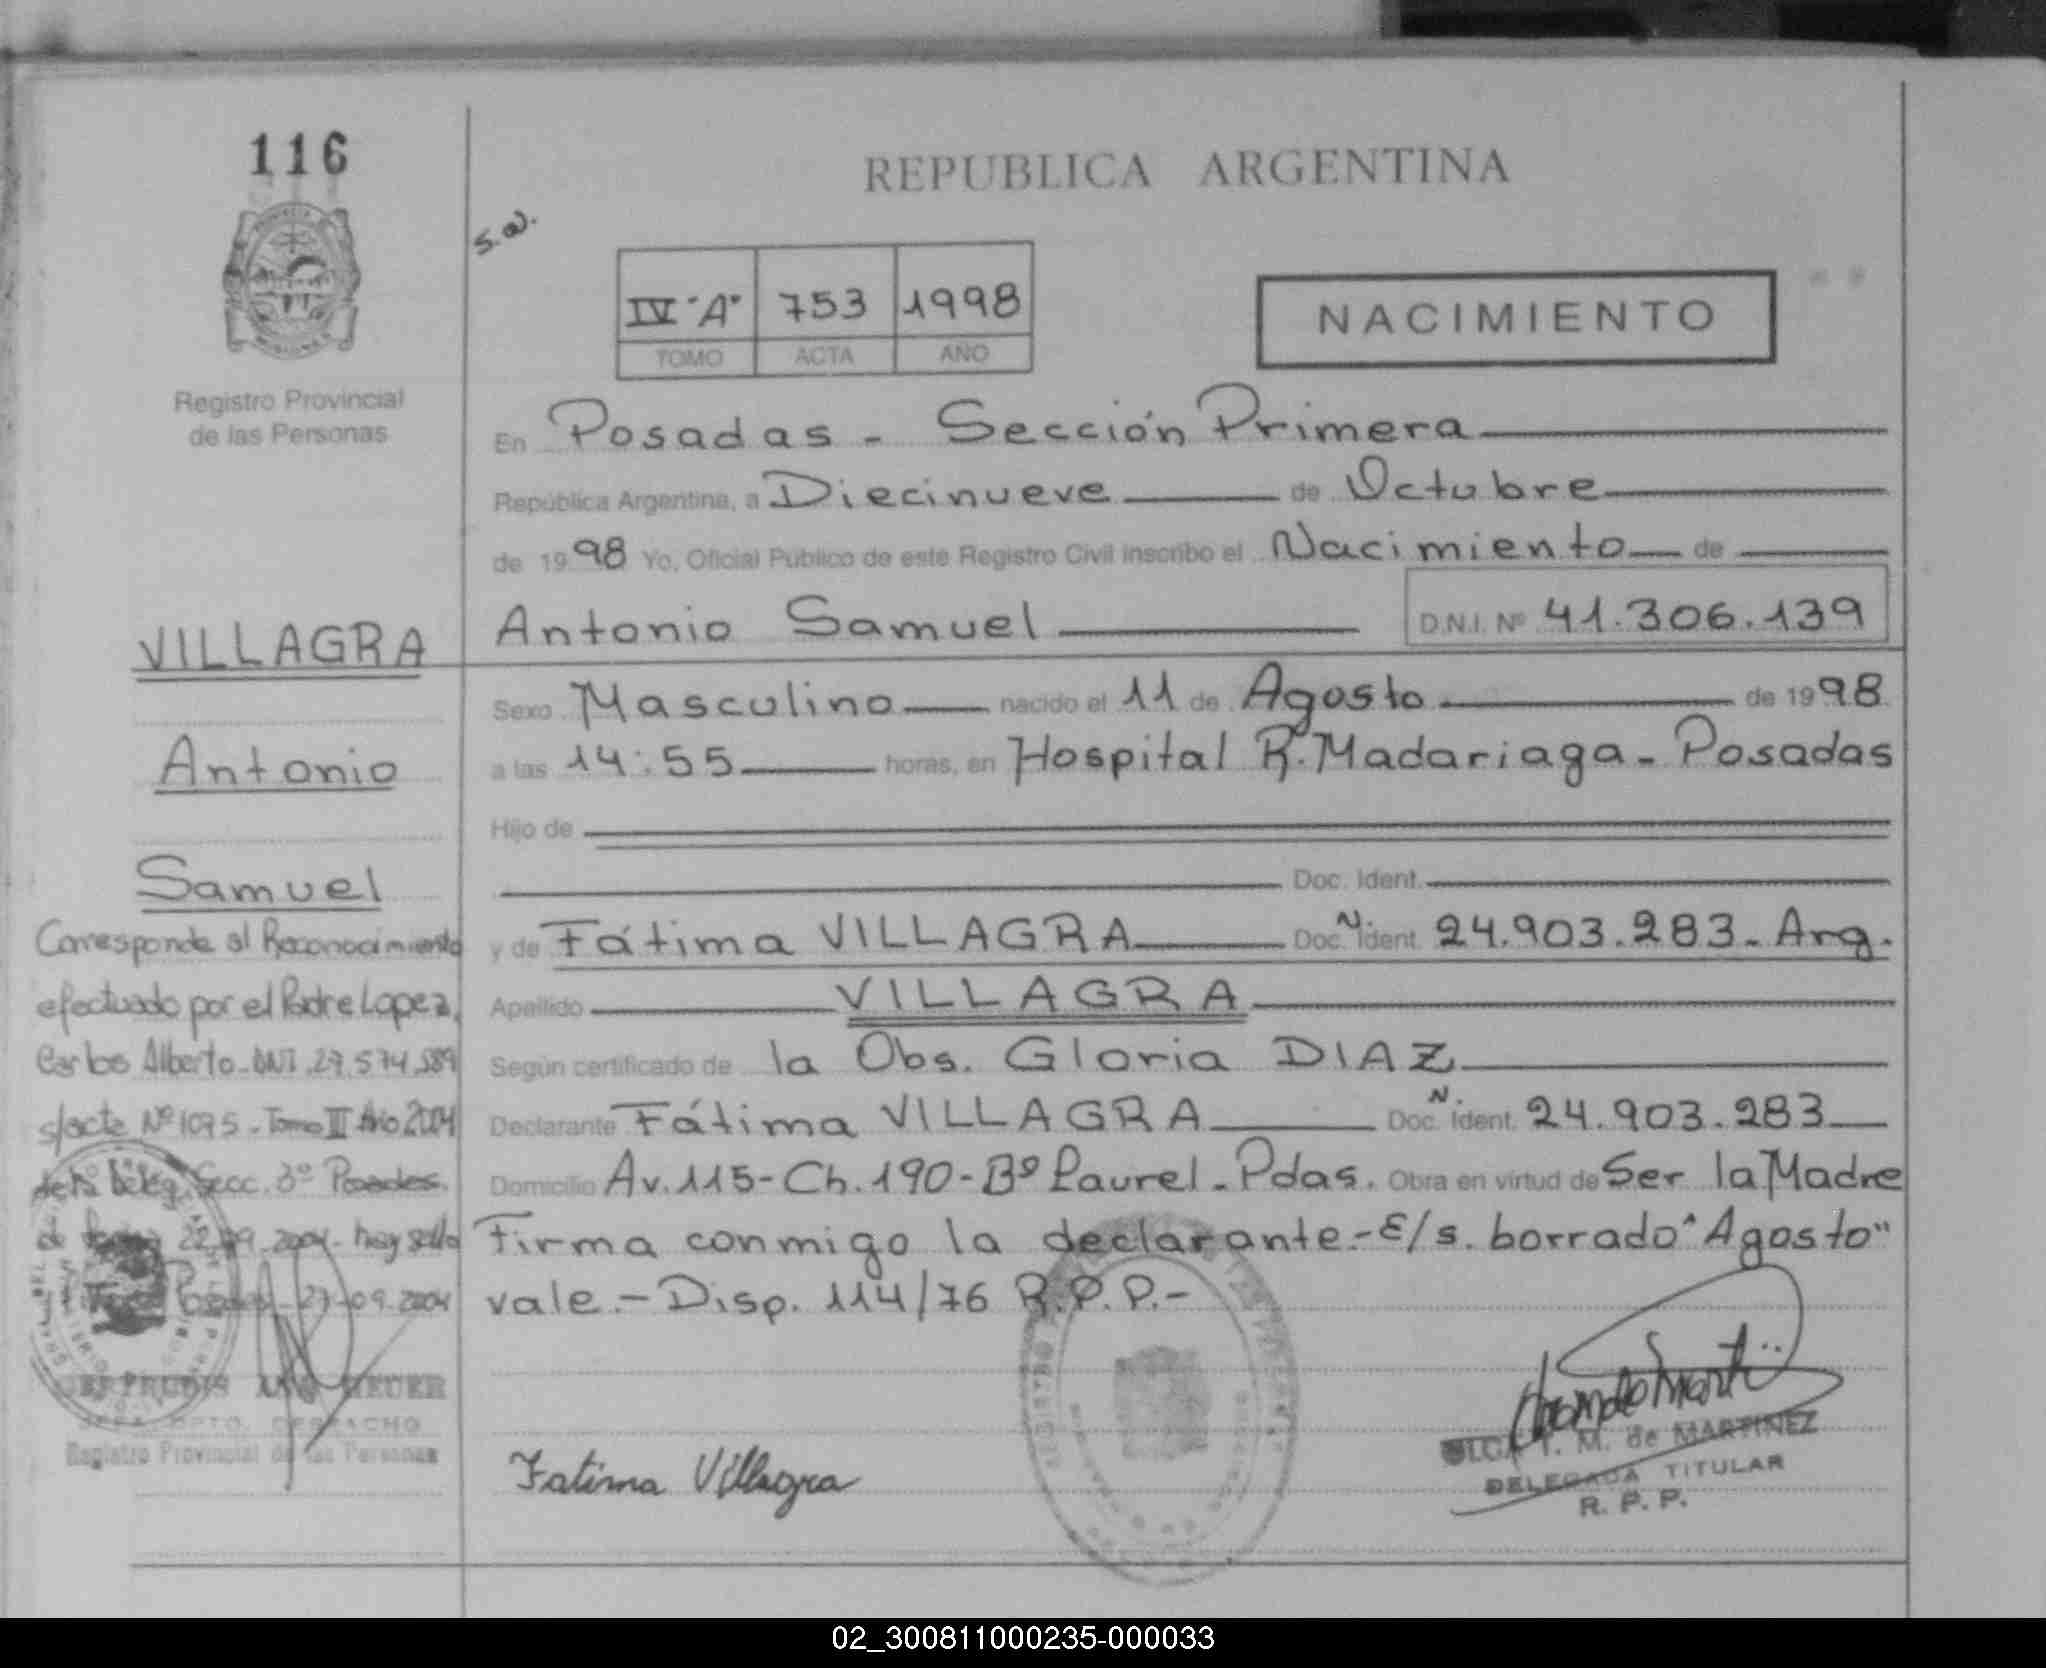 116
REPUBLICA ARGENTINA
S.N.
IV "A" 753 1998
TOMO ACTA AÑO
NACIMIENTO
Registro Provincial
de las Personas
En Posadas - Sección Primera
República Argentina, a Diecinueve de Octubre
de 1998 Yo, Oficial Público de este Registro Civil inscribo el Nacimiento de
Antonio Samuel D.N.I. Nº 41.306.139
Sexo Masculino nacido el 11 de Agosto de 1998
a las 14:55 horas, en Hospital R. Madariaga - Posadas
Hijo de
Doc. Ident.
y de Fátima VILLAGRA Doc. N. Ident. 24.903.283 - Arg.
Apellido VILLAGRA
Según certificado de la Obs. Gloria DIAZ
Declarante Fátima VILLAGRA Doc. N. Ident. 24.903.283
Domicilio Av. 115 - Ch. 190 - Bº Laurel - Pdas. Obra en virtud de Ser la Madre
Firma conmigo la declarante.- E/s. borrado "Agosto"
vale.- Disp. 114/76 R.P.P.-
VILLAGRA
Antonio
Samuel
Corresponde al Reconocimiento
efectuado por el Padre Lopez,
Carlos Alberto - DNI. 27.574.589
s/acta Nº 1095 - Tomo III Año 2004
de la Deleg. Secc. 3º Posadas.
22.09.2004 - hay sello
Posadas - 27-09-2004
GERTRUDIS ANA
JEFA DPTO. DESPACHO
Registro Provincial de las Personas
Fatima Villagra
OLGA T. M. de MARTINEZ
DELEGADA TITULAR
R. P. P.
02_300811000235-000033